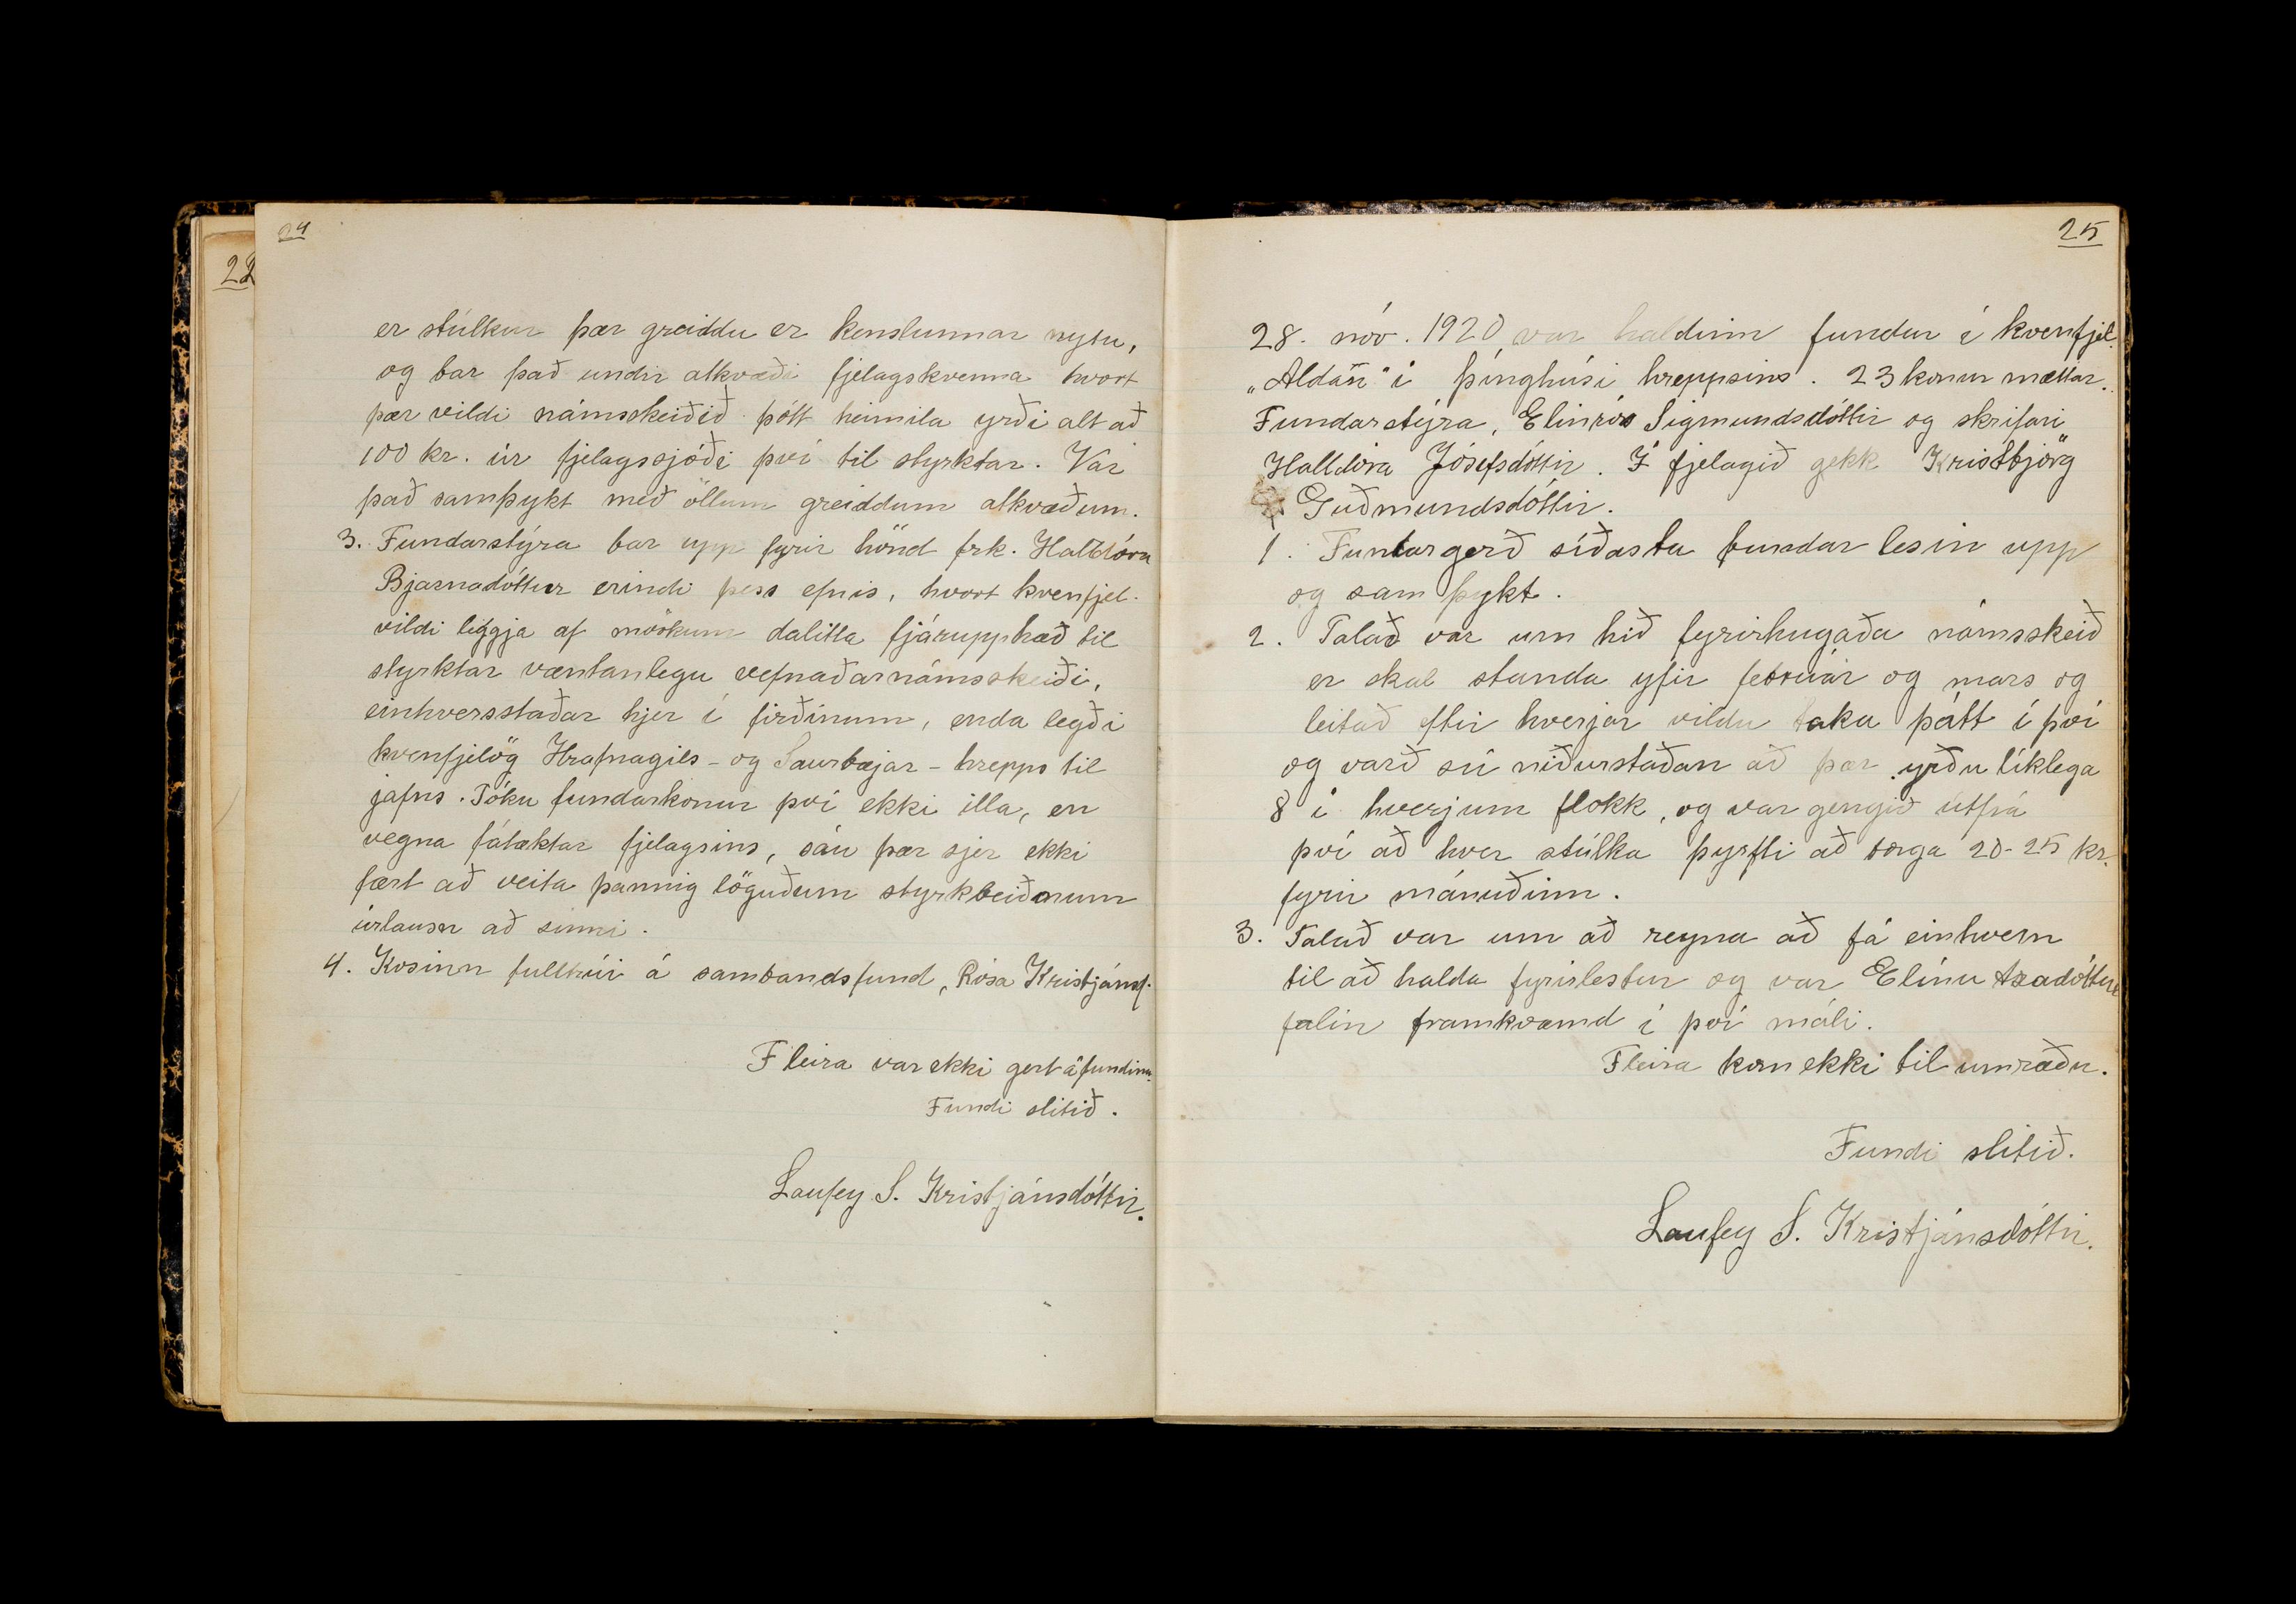 24
22
er stúlkur þær greiddu er kenslunnar nytu,
og bar það undir atkvæði fjelagskvenna hvort
þær vildi námsskeiðið þótt heimila yrði alt að
100 kr. úr fjelagssjóði því til styrktar. Var
það samþykt með öllum greiddum atkvæðum.
3. Fundarstýra bar upp fyrir hönd frk. Halldóru
Bjarnadóttur erindi þess efnis, hvort kvenfjel.
vildi leggja af mörkum dalitla fjárupphæð til
styrktar væntanlegu vefnaðarnámsskeiði,
einhversstaðar hjer í firðinum, enda legði
kvenfjelög Hrafnagils- og Saurbæjar-hrepps til
jafns. Tóku fundarkonur því ekki illa, en
vegna fátæktar fjelagsins, sáu þær sjer ekki
fært að veita þannig löguðum styrkbeiðnum
úrlausn að sinni.
4. Kosinn fulltrúi á sambandsfund, Rósa Kristjánsd.
Fleira var ekki gert á fundinu.
Fundi slitið.
Laufey S. Kristjánsdóttir.
25
28. nóv. 1920 var haldinn fundur í kvenfjel.
„Aldan" í þinghúsi hreppsins. 23 konur mættar.
Fundarstýra, Elinrós Sigmundsdóttir og skrifari
Halldóra Jósefsdóttir. Í fjelagið gekk Kristbjörg
Guðmundsdóttir.
1. Fundargerð síðasta fundar lesin upp
og samþykt.
2. Talað var um hið fyrirhugaða námsskeið
er skal standa yfir febrúar og mars og
leitað eftir hverjar vildu taka þátt í því
og varð sú niðurstaðan að þær yrðu líklega
8 í hverjum flokk, og var gengið útfrá
því að hver stúlka þyrfti að borga 20-25 kr.
fyrir mánuðinn.
3. Talað var um að reyna að fá einhvern
til að halda fyrirlestur og var Elínu
falin framkvæmd í því máli.
Fleira kom ekki til umræðu.
Fundi slitið.
Laufey S. Kristjánsdóttir.